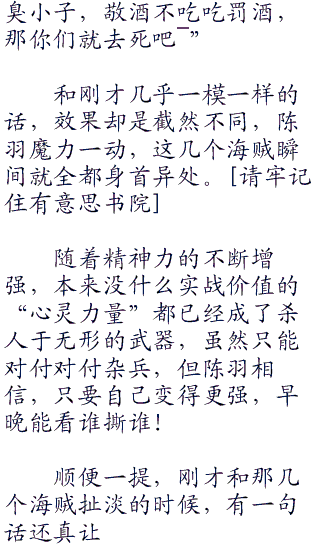 臭小子，敬酒不吃吃罚酒，
那你们就去死吧ˉ”
和刚才几乎一模一样的
话，效果却是截然不同，陈
羽魔力一动，这几个海贼瞬
间就全都身首异处。[请牢记
住有意思书院]
随着精神力的不断增
强，本来没什么实战价值的
“心灵力量”都已经成了杀
人于无形的武器，虽然只能
对付对付杂兵，但陈羽相
信，只要自己变得更强，早
晚能看谁撕谁！
顺便一提，刚才和那几
个海贼扯淡的时候，有一句
话还真让